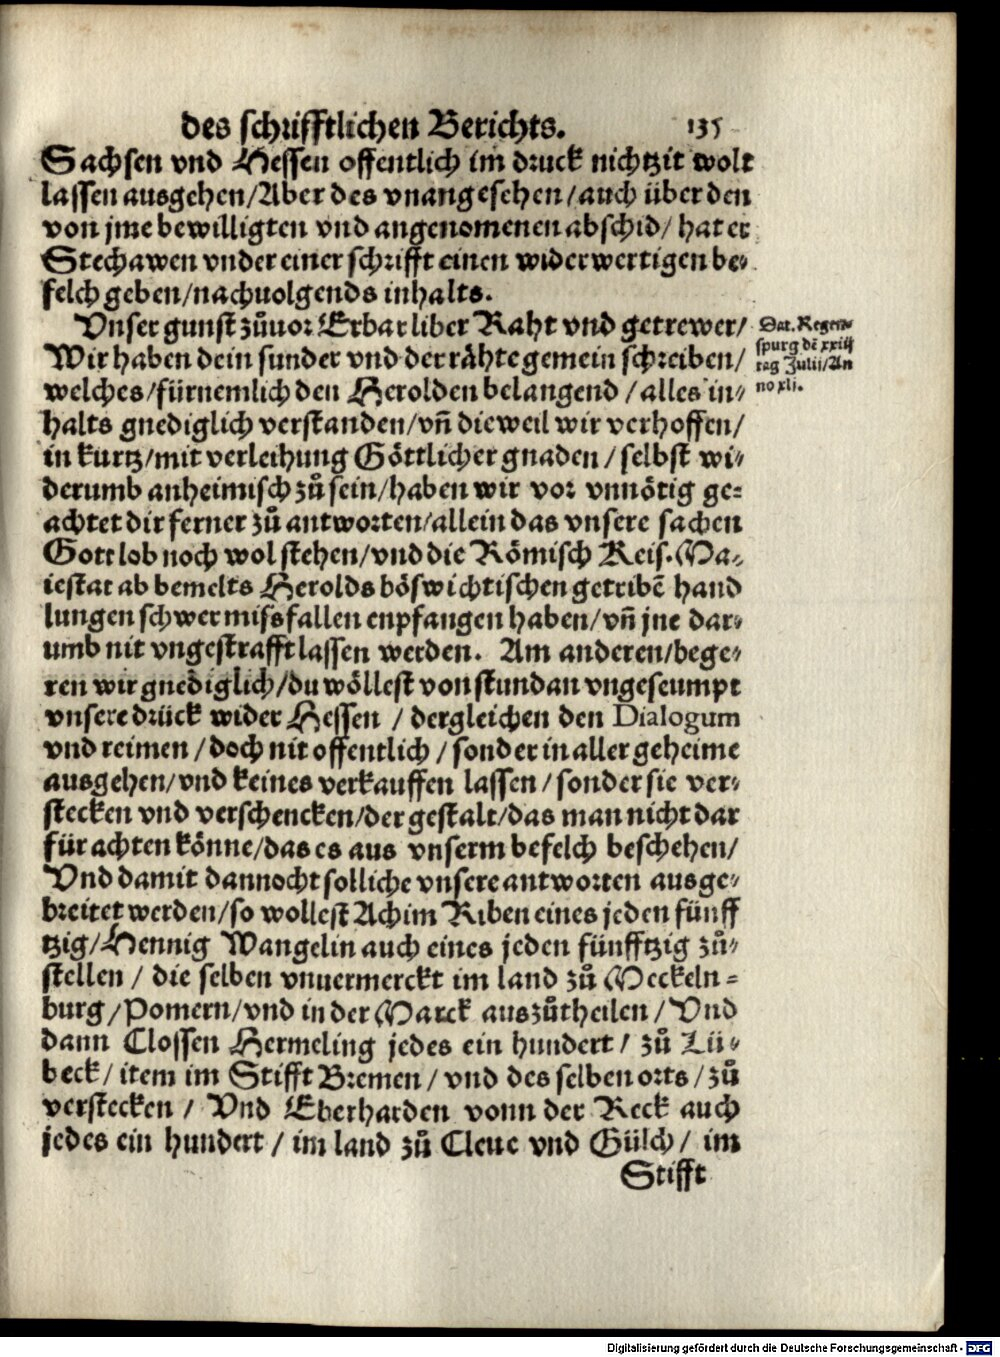 des schrifftlichen Berichts. 135
Sachsen vnd Hessen offentlich im druck nichtzit wolt
lassen ausgehen/Aber des vnangesehen/auch über den
von jme bewilligten vnd angenomenen abschid/ hat er
Stechawen vnder einer schrifft einen widerwertigen be⸗
felch geben/nachuolgends inhalts.
Vnser gunst zůuor Erbar liber Raht vnd getrewer/
Wir haben dein sunder vnd der rähte gemein schreiben/
welches/fürnemlich den Herolden belangend/alles in⸗
halts gnediglich verstanden/vñ dieweil wir verhoffen/
in kurtz/mit verleihung Göttlicher gnaden/selbst wi⸗
derumb anheimisch zů sein/haben wir vor vnnötig ge⸗
achtet dir ferner zů antworten/allein das vnsere sachen
Gott lob noch wol stehen/vnd die Römisch Keis. Ma⸗
iestat ab bemelts Herolds böswichtischen getribẽ hand
lungen schwer missfallen enpfangen haben/vñ jne dar⸗
umb nit vngestrafft lassen werden. Am anderen/bege⸗
ren wir gnediglich/du wöllest von stundan vngeseumpt
vnsere drück wider Hessen / dergleichen den Dialogum
vnd reimen/doch nit offentlich/sonder in aller geheime
ausgehen/vnd keines verkauffen lassen/sonder sie ver⸗
stecken vnd verschencken/der gestalt/das man nicht dar
für achten könne/das es aus vnserm befelch beschehen/
Vnd damit dannocht solliche vnsere antworten ausge⸗
breitet werden/so wollest Achim Riben eines jeden fünff
tzig/Hennig Wangelin auch eines jeden fünfftzig zů⸗
stellen / die selben vnuermerckt im land zů Meckeln⸗
burg/Pomern/vnd in der Marck auszůtheilen/Vnd
dann Clossen Hermeling jedes ein hundert/ zů Lü⸗
beck/item im Stifft Bremen/vnd des selben orts/zů
verstecken / Vnd Eberharden vonn der Reck auch
jedes ein hundert/im land zů Cleue vnd Gülch/ im
Stifft
Dat. Regens⸗
spurg dẽ xxiiij
tag Julii/An
no xlj.
Digitalisierung gefördert durch die Deutsche Forschungsgemeinschaft - DFG